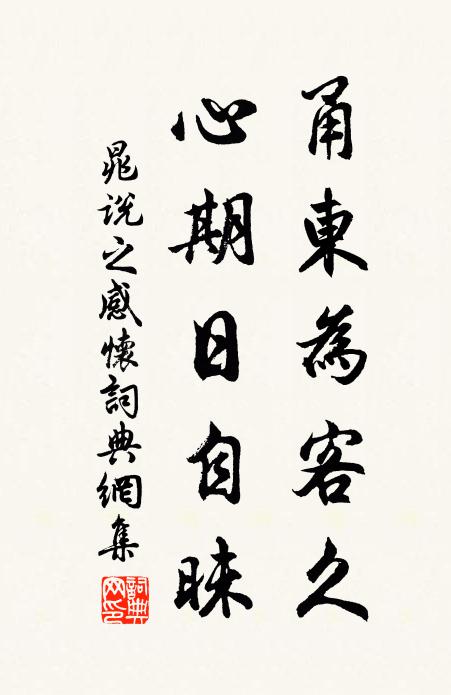 甬東為客久
心期日自昧
晁說之感懷詞典網集
詞典
网印